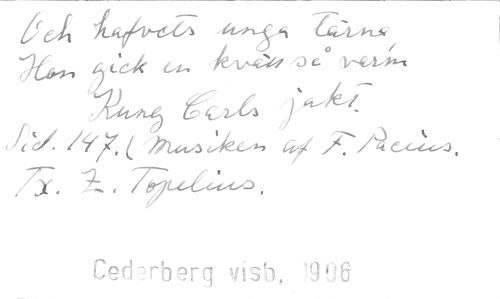 Och hafvets unga tärna
Hon gick en kväll så varm
Kung Carls jakt.
Sid. 147. (Musiken af F. Pacius.
Tx. Z. Topelius.
Cederberg visb, 1906